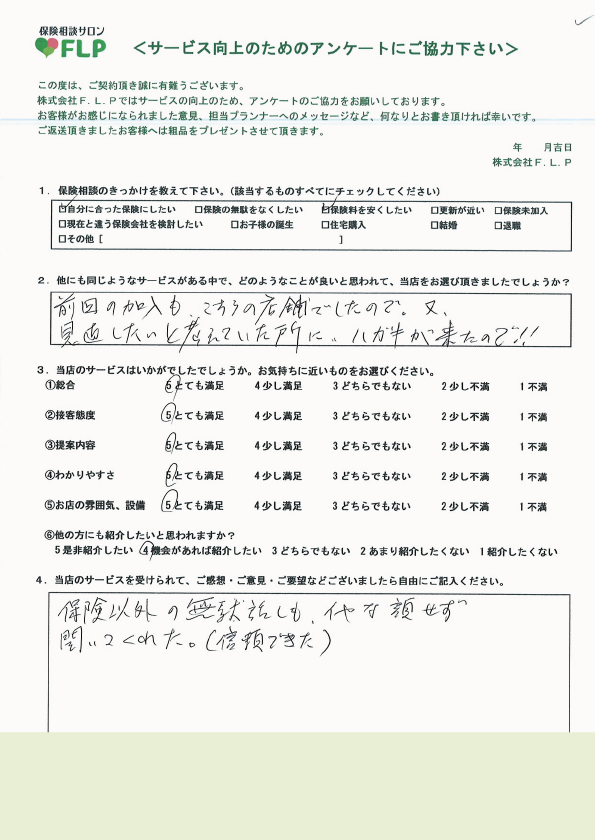 保険相談サロン
FLP
＜サービス向上のためのアンケートにご協力下さい＞
この度は、ご契約頂き誠に有難うございます。
株式会社Ｆ．Ｌ．Ｐではサービスの向上のため、アンケートのご協力をお願いしております。
お客様がお感じになられました意見、担当プランナーへのメッセージなど、何なりとお書き頂ければ幸いです。
ご返送頂きましたお客様へは粗品をプレゼントさせて頂きます。
年　　月吉日
株式会社Ｆ．Ｌ．Ｐ
１．保険相談のきっかけを教えて下さい。（該当するものすべてにチェックしてください）
☑自分に合った保険にしたい　□保険の無駄をなくしたい　☑保険料を安くしたい　□更新が近い　□保険未加入
□現在と違う保険会社を検討したい　□お子様の誕生　□住宅購入　□結婚　□退職
□その他［　　　　　］
２．他にも同じようなサービスがある中で、どのようなことが良いと思われて、当店をお選び頂きましたでしょうか？
前回の加入も、こちらの店舗でしたので。又、
見直したいと考えていた所に、ハガキが来たので!!
３．当店のサービスはいかがでしたでしょうか。お気持ちに近いものをお選びください。
①総合　５とても満足　４少し満足　３どちらでもない　２少し不満　１不満
②接客態度　５とても満足　４少し満足　３どちらでもない　２少し不満　１不満
③提案内容　５とても満足　４少し満足　３どちらでもない　２少し不満　１不満
④わかりやすさ　５とても満足　４少し満足　３どちらでもない　２少し不満　１不満
⑤お店の雰囲気、設備　５とても満足　４少し満足　３どちらでもない　２少し不満　１不満
⑥他の方にも紹介したいと思われますか？
５是非紹介したい　４機会があれば紹介したい　３どちらでもない　２あまり紹介したくない　１紹介したくない
４．当店のサービスを受けられて、ご感想・ご意見・ご要望などございましたら自由にご記入ください。
保険以外の無駄話しも、イヤな顔せず
聞いてくれた。（信頼できた）